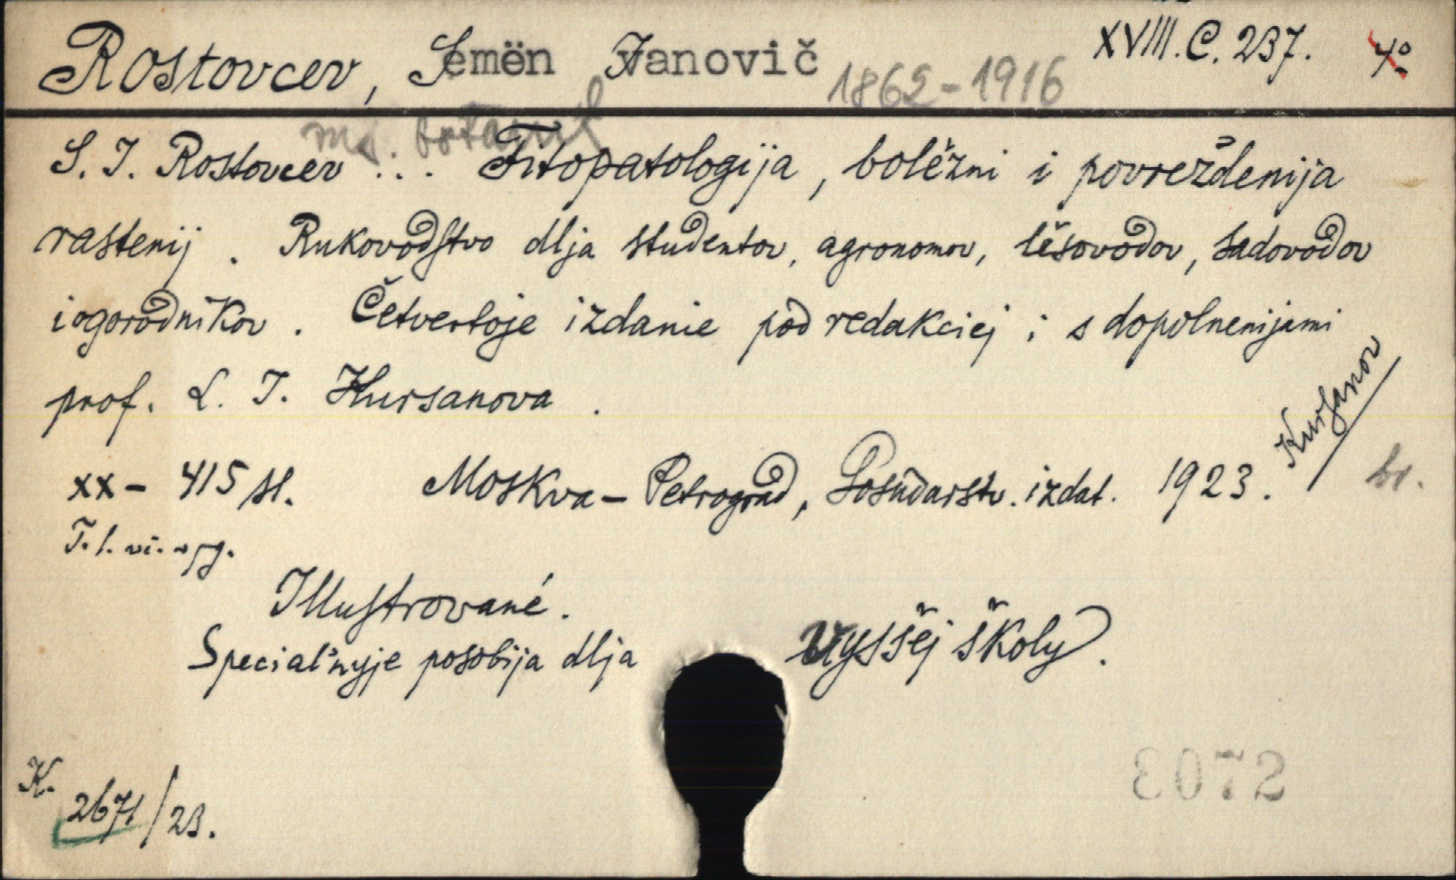 Rostovcev, Semën Ivanovič 1862-1916 XVIII.C.237. 4°
S. I. Rostovcev ... Fitopatologija, bolězni i povreždenija
rastenij. Rukovodstvo dlja studentov, agronomov, lěsovodov, sadovodov
i ogorodnikov. Četvertoje izdanie pod redakciej i s dopolnenijami
prof. L. I. Kursanova.
Kursanov
XX - 415 st. Moskva - Petrograd, Gosudarstv. izdat. 1923. br.
Illustrované.
Special'nyje posobija dlja vysšej školy.
3072
K. 2671/23.